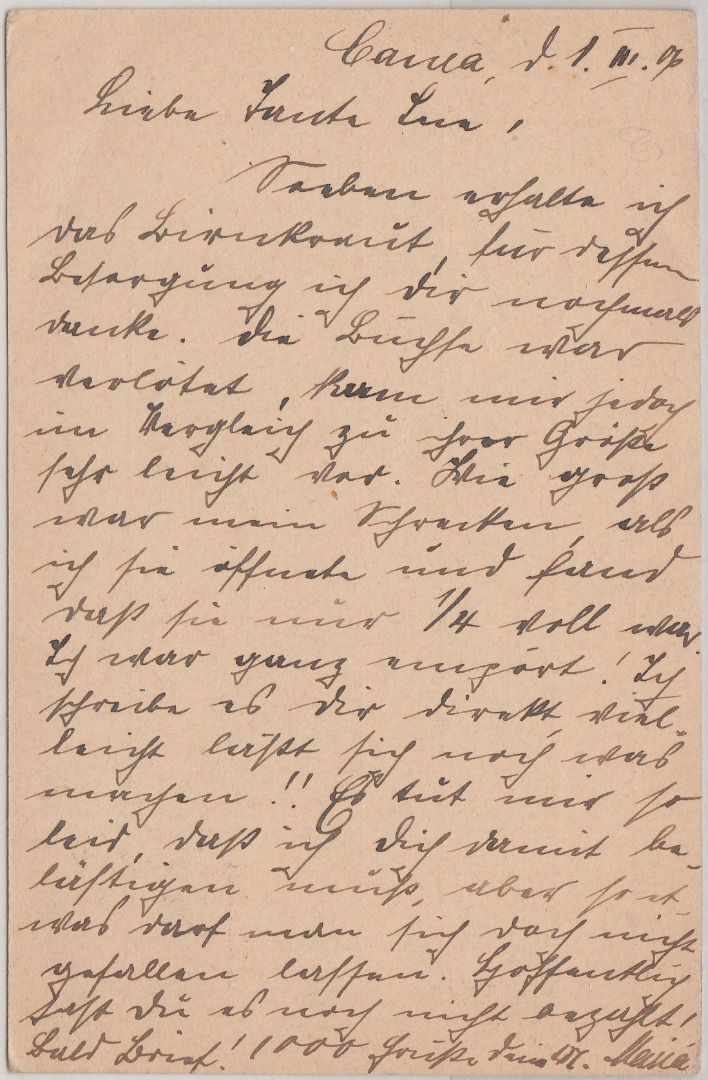 Canea, d. 1. III. 06
Liebe Tante Lene,
Soeben erhalte ich
das Birnkraut, für dessen
Besorgung ich dir nochmals
danke. Die Büchse war
verlötet, kam mir jedoch
im Vergleich zu ihrer Größe
sehr leicht vor. Wie groß
war mein Schrecken, als
ich sie öffnete und fand
daß sie nur 1/4 voll war.
Ich war ganz empört! Ich
schreibe es dir direkt, viel-
leicht läßt sich noch was
machen!! Es tut mir so
leid, daß ich dich damit be-
lästigen muß, aber so et-
was darf man sich doch nicht
gefallen lassen. Hoffentlich
hast du es noch nicht bezahlt!
Bald Brief! 1000 Grüße deine Maria